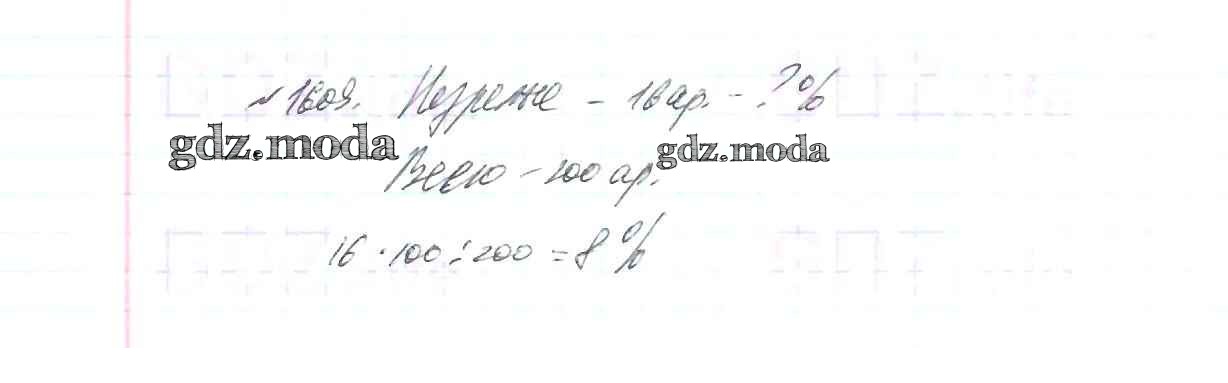 №1609. Незрелые – 16 ар. – ? %
gdz.moda gdz.moda
Всего – 200 ар.
16 · 100 : 200 = 8 %